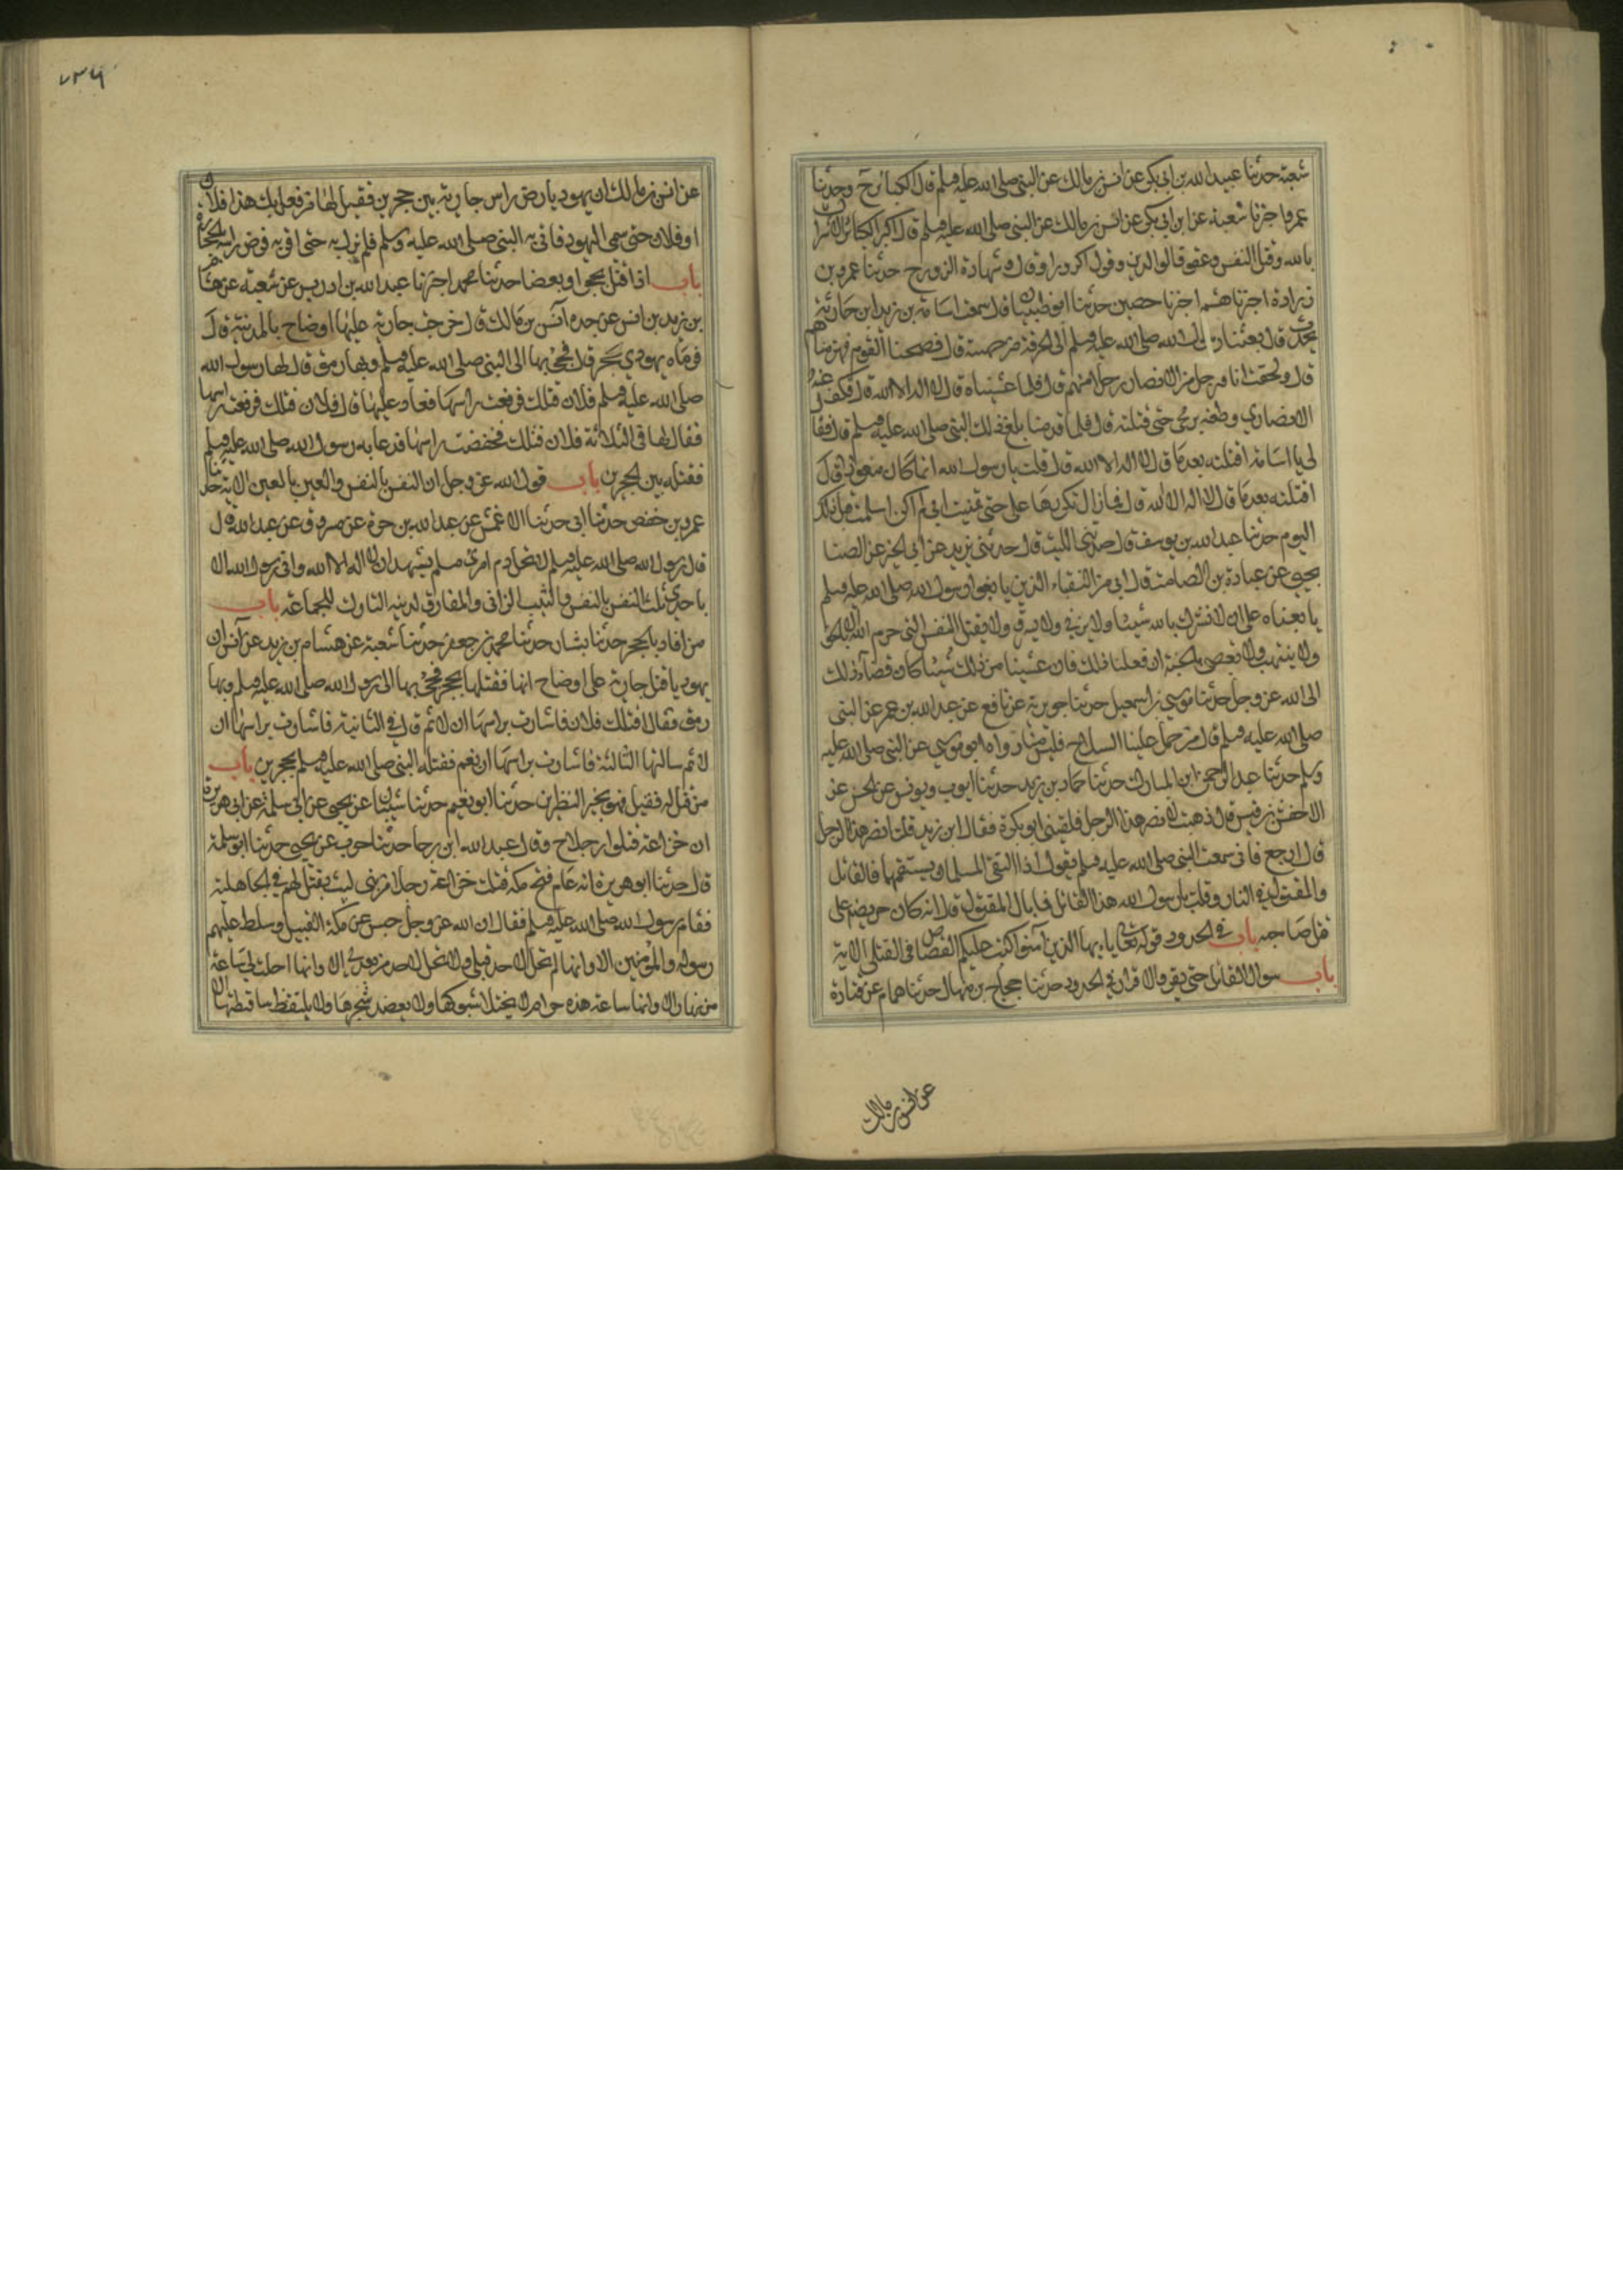 شعبة حدثنا عبيد الله بن ابي بكر عن انس بن مالك عن النبي صلى الله عليه وسلم قال الكبائر ح وحدثنا
عمرو اخبرنا شعبة عن ابن ابي بكر عن انس بن مالك عن النبي صلى الله عليه وسلم قال اكبر الكبائر الاشراك
بالله وقتل النفس وعقوق الوالدين وقول الزور او قال وشهادة الزور ح حدثنا عمرو بن
زرارة اخبرنا هشيم اخبرنا حصين حدثنا ابو ظبيان قال سمعت اسامة بن زيد ابن حارثة
يحدث قال بعثنا رسول الله صلى الله عليه وسلم الى الحرقة من جهينة قال فصبحنا القوم فهزمناهم
قال ولحقت انا ورجل من الانصار رجلا منهم قال فلما غشيناه قال لا اله الا الله قال فكف عنه
الانصاري وطعنته برمحي حتى قتلته قال فلما قدمنا بلغ ذلك النبي صلى الله عليه وسلم قال فقال
لي يا اسامة اقتلته بعدما قال لا اله الا الله قال قلت يا رسول الله انما كان متعوذا قال
اقتلته بعدما قال لا اله الا الله قال فما زال يكررها على حتى تمنيت اني لم اكن اسلمت قبل ذلك
اليوم حدثنا عبد الله بن يوسف قال حدثني الليث قال حدثني يزيد عن ابي الخير عن الصنا
بحيي عن عبادة بن الصامت قال اني من النقباء الذين بايعوا رسول الله صلى الله عليه وسلم
بايعناه على ان لا نشرك بالله شيئا ولا نزني ولا نسرق ولا نقتل النفس التي حرم الله الا بالحق
ولا ننتهب ولا نعصي بالجنة ان فعلنا ذلك فان غشينا من ذلك شيئا كان قضآء ذلك
الى الله عز وجل حدثنا موسى بن اسمعيل حدثنا جويرية عن نافع عن عبد الله بن عمر عن النبي
صلى الله عليه وسلم قال من حمل علينا السلاح فليس منا رواه ابو موسى عن النبي صلى الله عليه
وسلم حدثنا عبد الرحمن ابن المبارك حدثنا حماد بن زيد حدثنا ايوب ويونس عن الحسن عن
الاحنف بن قيس قال ذهبت لانصر هذا الرجل فلقيني ابو بكرة فقال اين تريد قلت انصر هذا الرجل
قال ارجع فاني سمعت النبي صلى الله عليه وسلم يقول اذا التقى المسلمان بسيفيهما فالقاتل
والمقتول في النار وقلت يا رسول الله هذا القاتل فما بال المقتول قال انه كان حريصا على
قتل صاحبه باب في الحدود قوله تعالى يا ايها الذين آمنوا كتب عليكم القصاص في القتلى الاية
باب سوال القاتل حتى يقر والاقرار في الحدود حدثنا حجاج بن منهال حدثنا همام عن قتادة
عن انس بن مالك
٧٣٦
عن انس بن مالك ان يهوديا رض راس جارية بين حجرين فقيل لها من فعل بك هذا فلان
او فلان حتى سمى اليهودي فاتى به النبي صلى الله عليه وسلم فلم يزل به حتى اقر به فرض راسه بالحجارة
باب اذا قتل بحجر او بعصا حدثنا محمد اخبرنا عبد الله بن ادريس عن شعبة عن هشام
بن زيد بن انس عن جده آنس بن مالك قال خرجت جارية عليها اوضاح بالمدينة قال
فرماه يهودي بحجر قال فجئ بها الى النبي صلى الله عليه وسلم وبها رمق قال لها رسول الله
صلى الله عليه وسلم فلان قتلك فرفعت راسها فعاد عليها قال فلان قتلك فرفعت راسها
فقال لها في الثلاثة فلان قتلك فخفضت راسها فدعا به رسول الله صلى الله عليه وسلم
فقتله بين الحجرين باب قول الله عز وجل ان النفس بالنفس والعين بالعين الاية حدثنا
عمرو بن حفص حدثنا ابي حدثنا الاعمش عن عبد الله بن مرة عن مسروق عن عبد الله قال
قال رسول الله صلى الله عليه وسلم لا يحل دم امرئ مسلم يشهد ان لا اله الا الله واني رسول الله الا
باحدى ثلث النفس بالنفس والثيب الزاني والمفارق لدينه التارك للجماعة باب
من اقاد بالحجر حدثنا بشار حدثنا محمد بن جعفر حدثنا شعبة عن هشام بن زيد عن آنس ان
يهوديا قتل جارية على اوضاح انها فقتلها بحجر فجئ بها الى رسول الله صلى الله عليه وسلم وبها
رمق فقال اقتلك فلان فاشارت براسها ان لا ثم قال في الثانية فاشارت براسها ان
لا ثم سالها الثالثة فاشارت براسها ان نعم فقتله النبي صلى الله عليه وسلم بحجرين باب
من قتل له قتيل فهو بخير النظرين حدثنا ابو نعيم حدثنا شيبان عن يحيى عن ابي سلمة عن ابي هريرة
ان خزاعة قتلوا رجلا ح وقال عبد الله ابن رجا حدثنا حرب عن يحيى حدثنا ابو سلمة
قال حدثنا ابو هريرة انه عام فتح مكة قتلت خزاعة رجلا من بني ليث بقتيل لهم في الجاهلية
فقام رسول الله صلى الله عليه وسلم فقال ان الله عز وجل حبس عن مكة الفيل وسلط عليهم
رسوله والمؤمنين الا وانها لم تحل لاحد قبلي ولا تحل لاحد من بعدي الا وانها احلت لي ساعة
من نهار الا وانها ساعته هذه حرام لا يختلا شوكها ولا يعضد شجرها ولا يلتقط ساقطتها الا